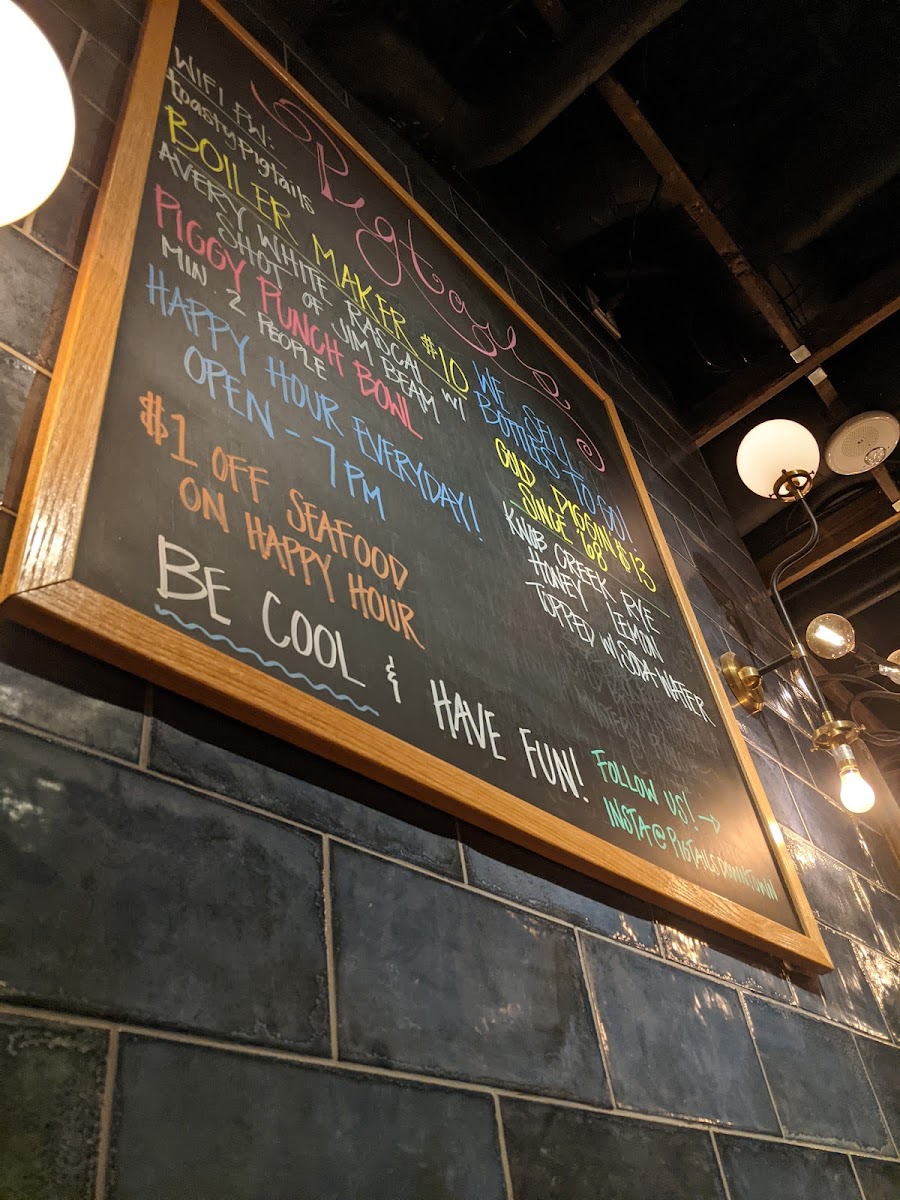 Pigtails
WIFI PW:
toastypigtails
BOILER MAKER $10
AVERY WHITE RASCAL W/
SHOT OF JIM BEAM
PIGGY PUNCH BOWL
MIN. 2 PEOPLE
HAPPY HOUR EVERYDAY!
OPEN - 7PM
$1 OFF SEAFOOD
ON HAPPY HOUR
BE COOL & HAVE FUN!
WE SELL
BOTTLED TO GO!
GOLD DIGGIN $13
SINCE '68
KNOB CREEK RYE
HONEY LEMON
TOPPED W/ SODA WATER
FOLLOW US! →
INSTA@PIGTAILSDOWNTOWN